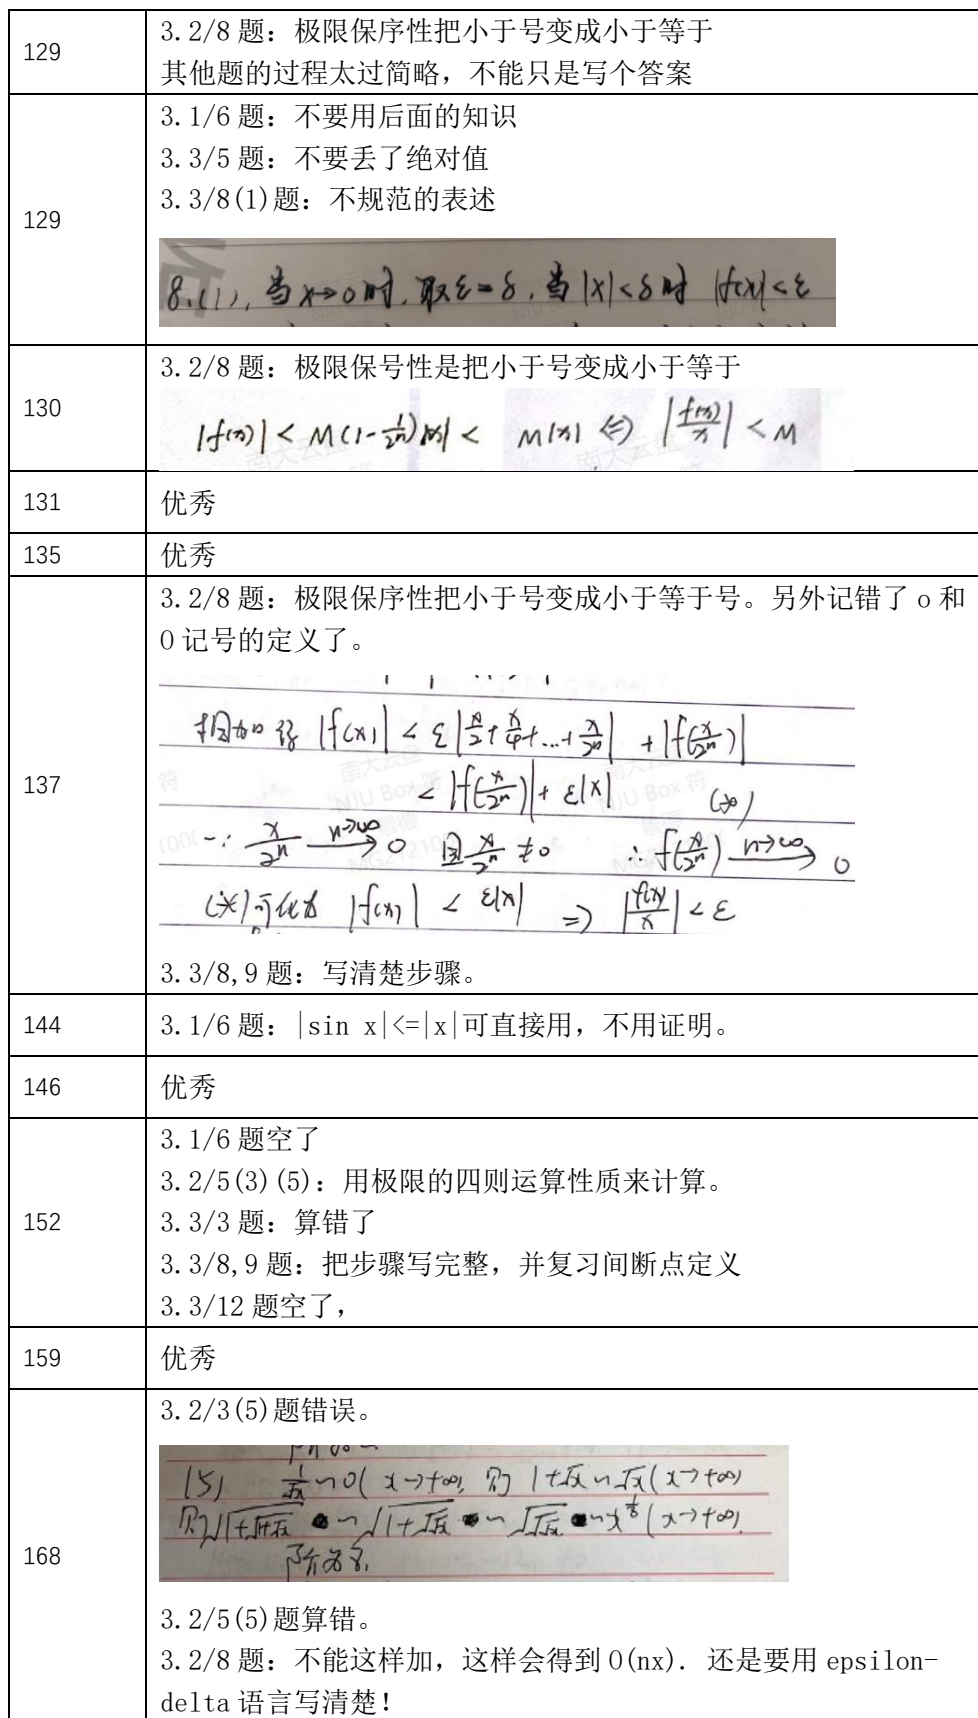 129
3.2/8 题：极限保序性把小于号变成小于等于
其他题的过程太过简略，不能只是写个答案
129
3.1/6 题：不要用后面的知识
3.3/5 题：不要丢了绝对值
3.3/8(1)题：不规范的表述
8.(1), 当 x→0 时, 取 ε=δ, 当 |x|<δ 时 |f(x)|<ε
130
3.2/8 题：极限保号性是把小于号变成小于等于
|f(x)| < M(1-1/2ⁿ)|x| < M|x| ⇔ |f(x)/x| < M
131
优秀
135
优秀
137
3.2/8 题：极限保序性把小于号变成小于等于号。另外记错了 o 和
O 记号的定义了。
相加得 |f(x)| < ε|x/2+x/4+...+x/2ⁿ| + |f(x/2ⁿ)|
< |f(x/2ⁿ)| + ε|x| (※)
∵ x/2ⁿ →(n→∞) 0 且 x/2ⁿ ≠0 ∴ f(x/2ⁿ) →(n→∞) 0
(※)可化为 |f(x)| < ε|x| ⇒ |f(x)/x| < ε
3.3/8,9 题：写清楚步骤。
144
3.1/6 题：|sin x|<=|x|可直接用，不用证明。
146
优秀
152
3.1/6 题空了
3.2/5(3)(5)：用极限的四则运算性质来计算。
3.3/3 题：算错了
3.3/8,9 题：把步骤写完整，并复习间断点定义
3.3/12 题空了，
159
优秀
168
3.2/3(5)题错误。
(5) 1/√x ~ 0(x→+∞), 则 1+√x ~ √x (x→+∞)
则 √(1+√(1+√x)) ~ √(1+√√x) ~ √√√x ~ x^(1/8) (x→+∞).
阶为1/8.
3.2/5(5)题算错。
3.2/8 题：不能这样加，这样会得到 O(nx). 还是要用 epsilon-
delta 语言写清楚！